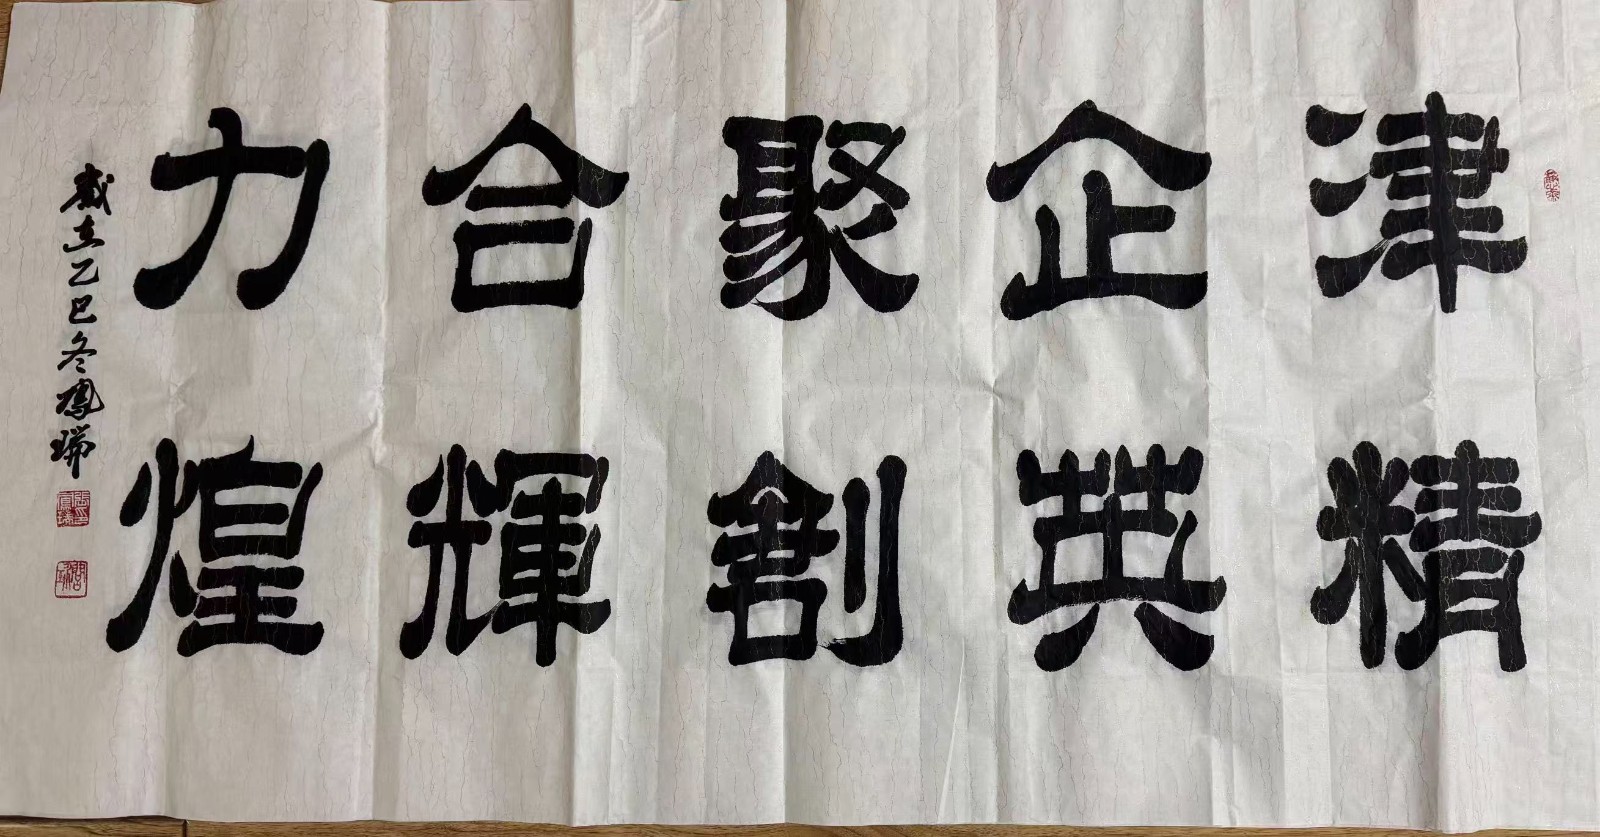 津企聚合力
精英創輝煌
歲在乙巳冬鳳瑞